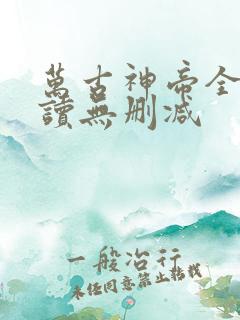 萬古神帝全
讀無刪減
一般冶行
未经同意禁止转载